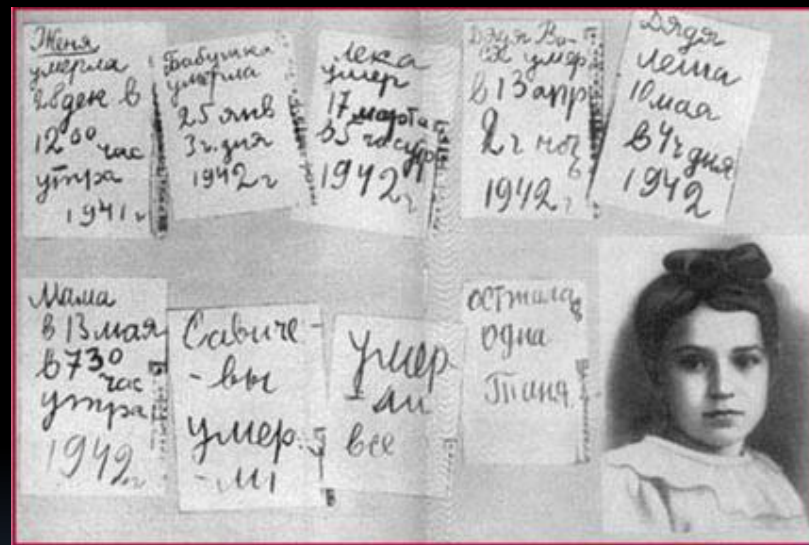 Женя
умерла
28 ден в
12 00 час
утра
1941 г
Бабушка
умерла
25 янв
3 ч. дня
1942 г
Лека
умер
17 марта
в 5 час утр
1942 г
Дядя Ва-
ся умер
в 13 апр
2 ч ноч
ь
1942 г
Дядя
Леша
10 мая
в 4 ч дня
1942
Мама
в 13 мая
в 7 30
час
утра
1942 г
Савиче-
-вы
умер-
-ли
умер
-ли
все
осталась
одна
Таня